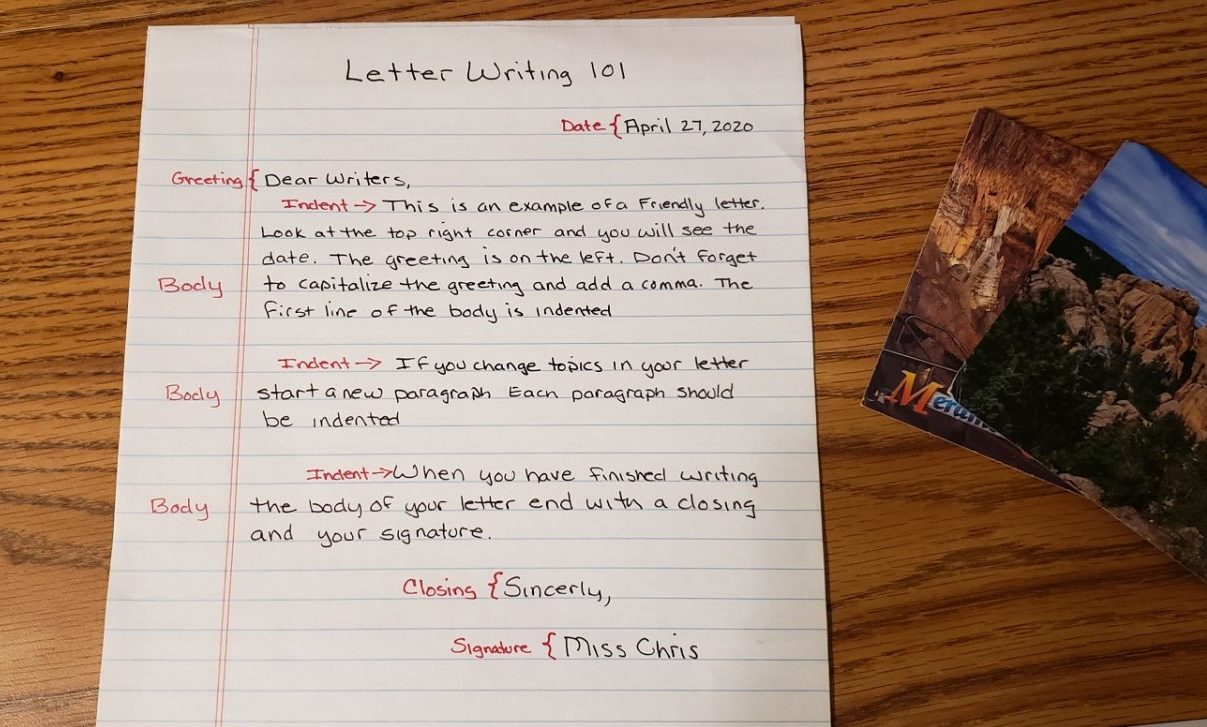 Letter Writing 101
Date { April 27, 2020
Greeting { Dear Writers,
Indent → This is an example of a Friendly letter.
Look at the top right corner and you will see the
date. The greeting is on the left. Don't forget
Body to capitalize the greeting and add a comma. The
first line of the body is indented
Indent → If you change topics in your letter
Body start a new paragraph Each paragraph should
be indented
Indent → When you have finished writing
Body the body of your letter end with a closing
and your signature.
Closing { Sincerly,
Signature { Miss Chris